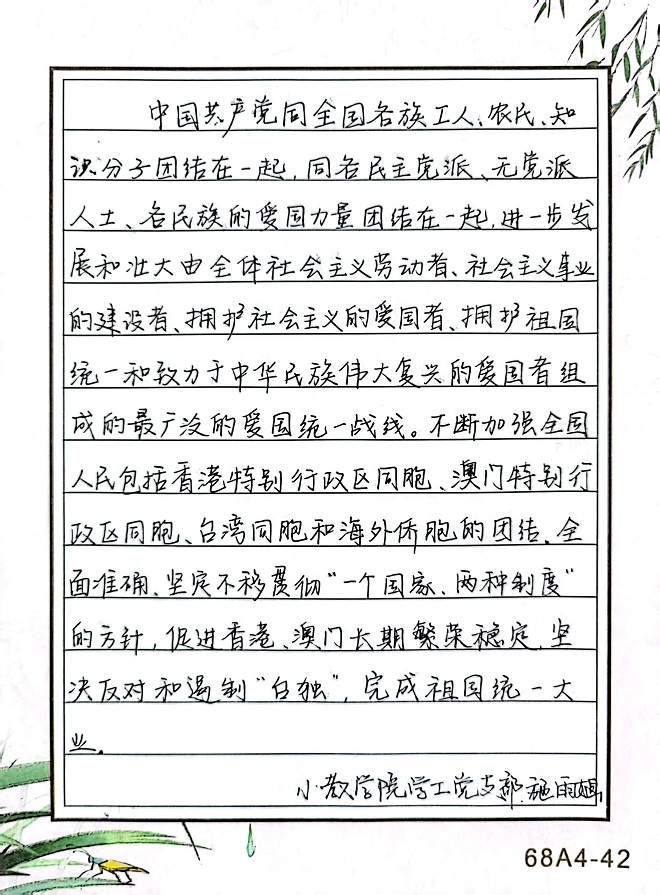 中国共产党同全国各族工人、农民、知
识分子团结在一起，同各民主党派、无党派
人士、各民族的爱国力量团结在一起，进一步发
展和壮大由全体社会主义劳动者、社会主义事业
的建设者、拥护社会主义的爱国者、拥护祖国
统一和致力于中华民族伟大复兴的爱国者组
成的最广泛的爱国统一战线。不断加强全国
人民包括香港特别行政区同胞、澳门特别行
政区同胞、台湾同胞和海外侨胞的团结。全
面准确、坚定不移贯彻“一个国家、两种制度”
的方针，促进香港、澳门长期繁荣稳定，坚
决反对和遏制“台独”，完成祖国统一大
业。
小教学院学工党支部 施雨
68A4-42